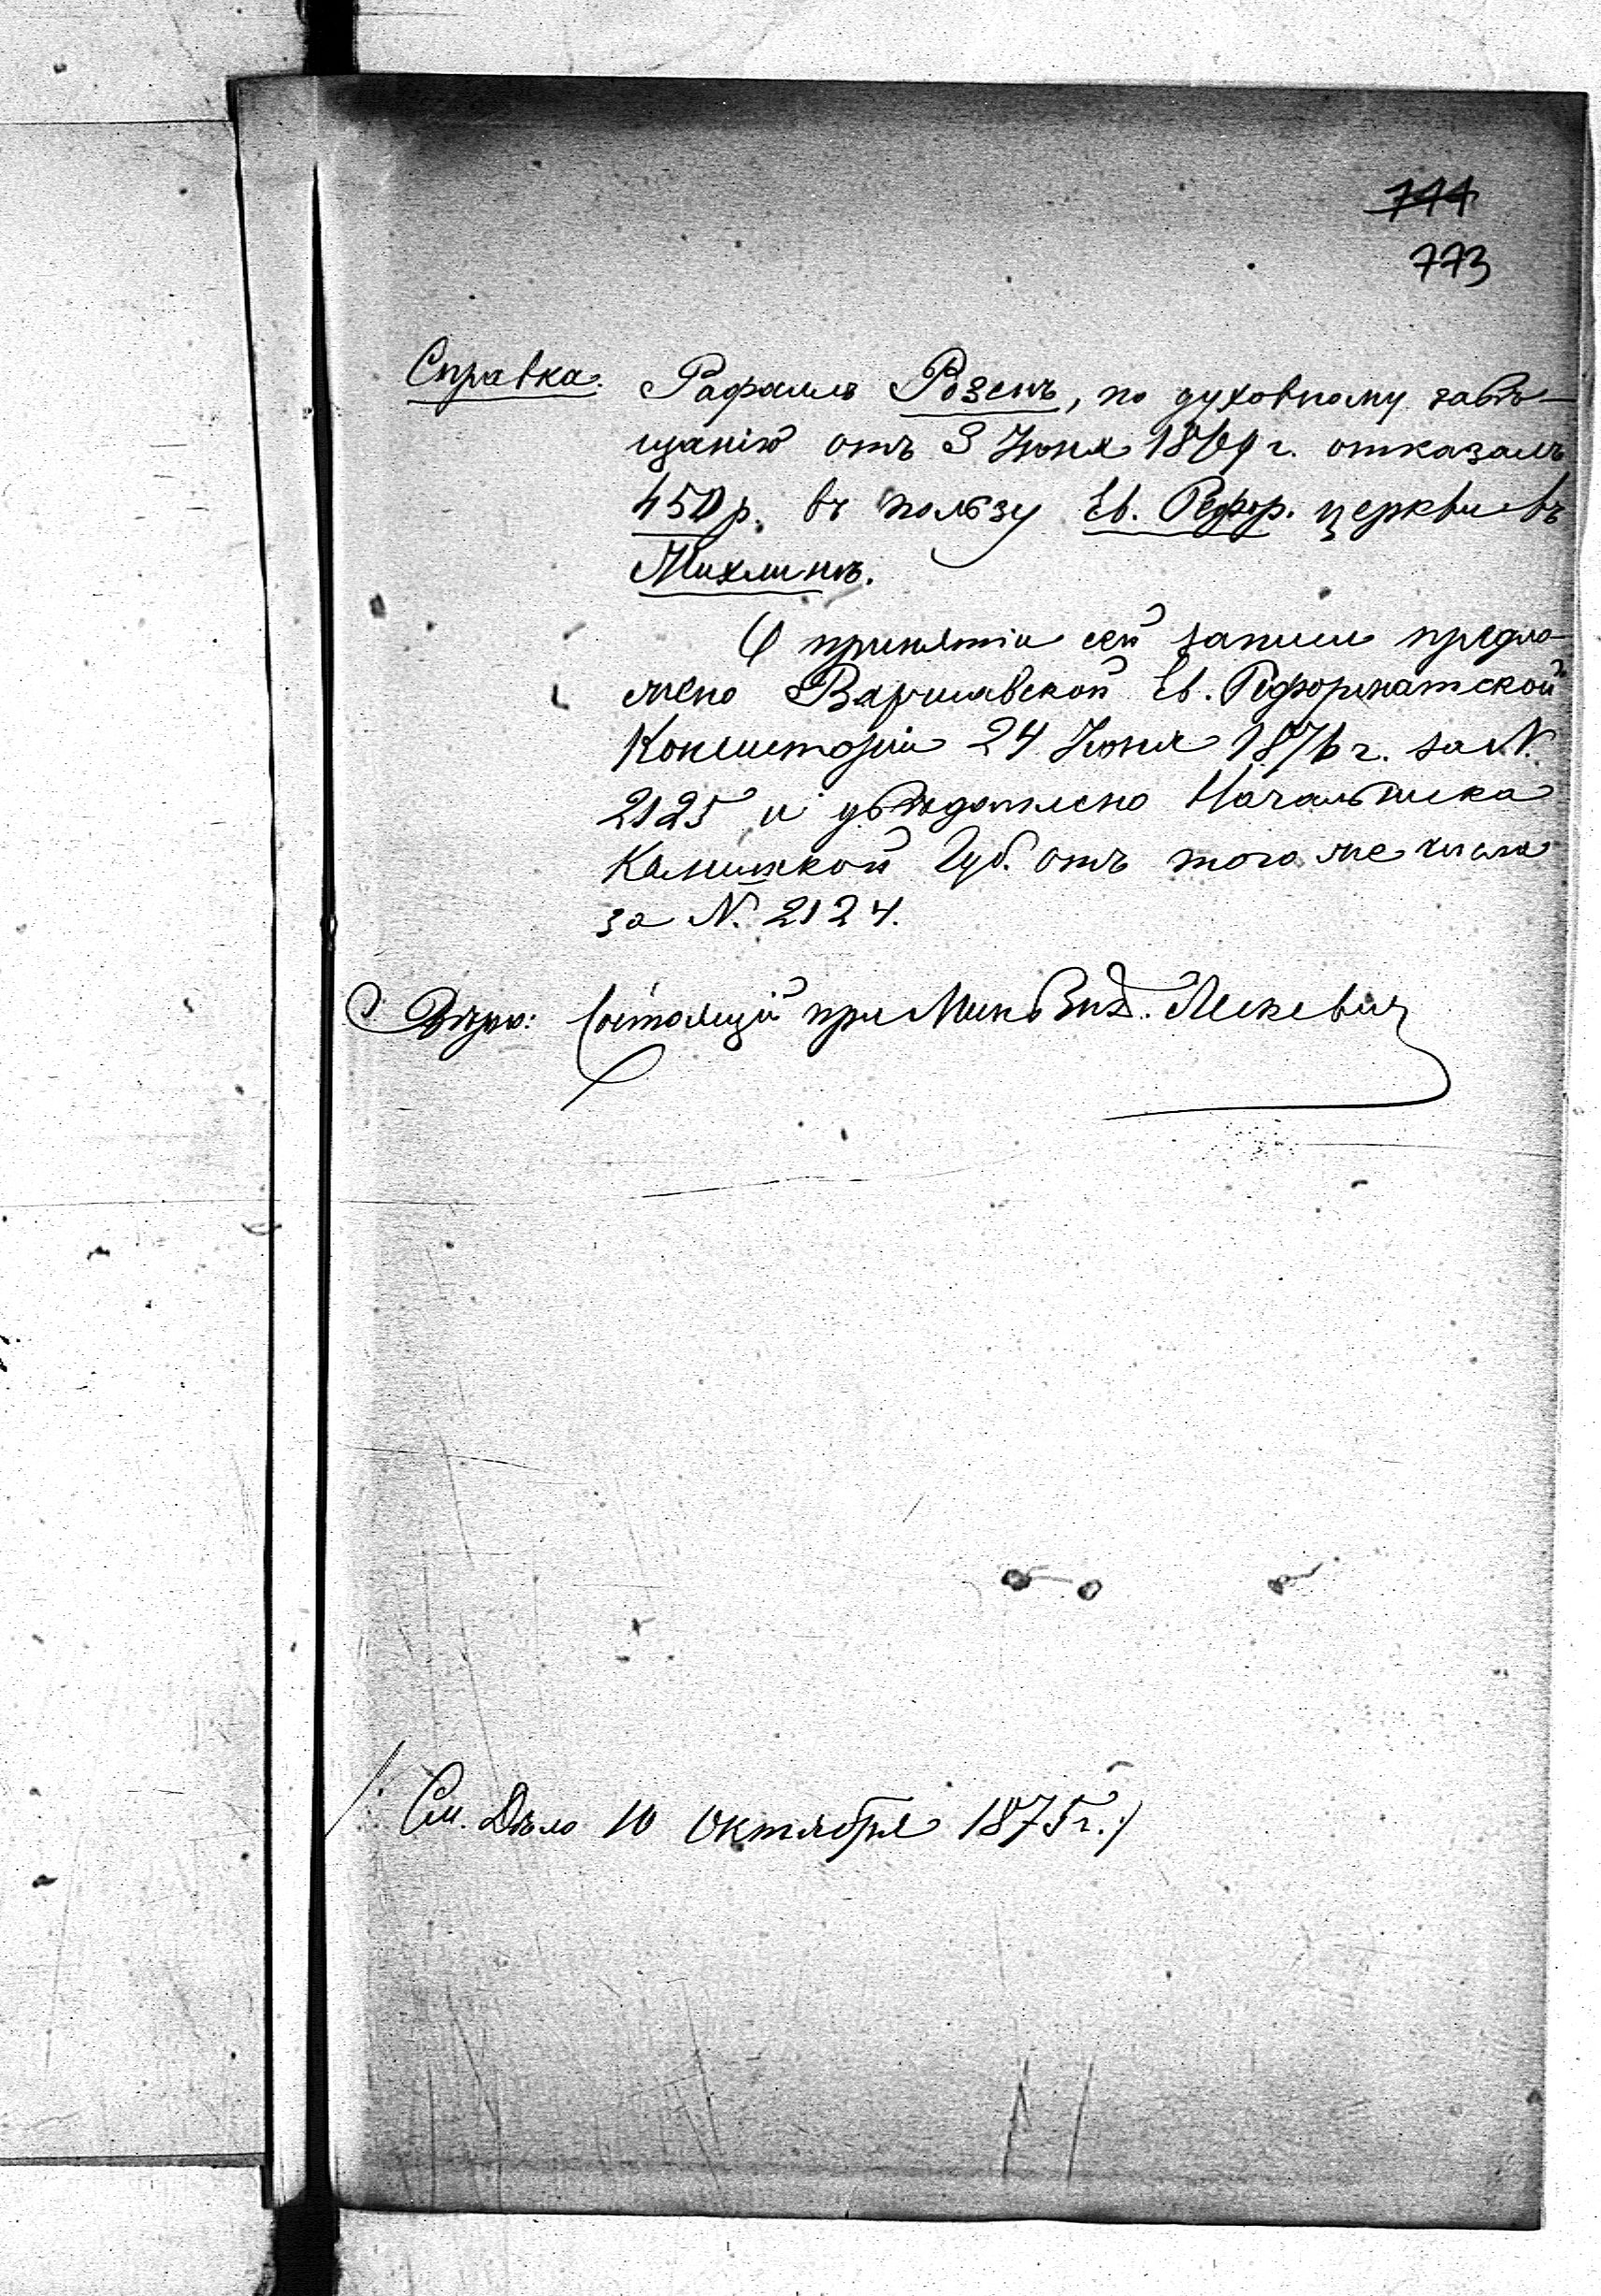 744
773
Справка. Рафаилъ Розенъ, по духовному завѣ-
щанію отъ 3 Іюня 1869 г. отказалъ
450 р. въ пользу Ев. Рефор. церкви въ
Жихлинѣ.
О принятіи сей записи предло-
жено Варшавской Ев. Реформатской
Консисторіи 24 Іюня 1876 г. за N.
2125 и увѣдомлено Начальника
Калишской Губ. отъ того же числа
за N. 2124.
Вѣрно: Состоящій при Мин. Вн. Д.
/: См. Дѣло 10 Октября 1875 г. :/